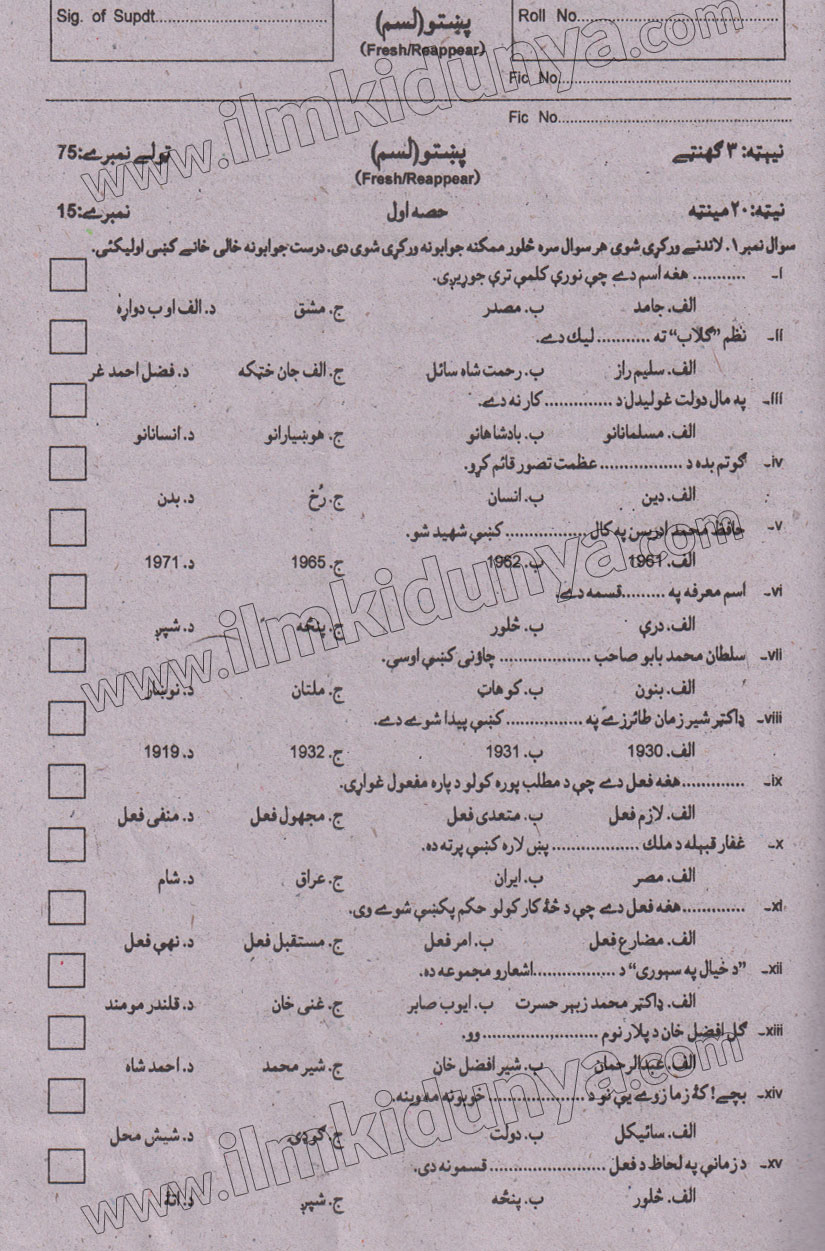 Sig. of Supdt........................................
پښتو (لسم)
(Fresh/Reappear)
Roll No................................................
Fic No................................................
Fic No................................................
نیټه: ۳ ګهنټے
پښتو (لسم)
(Fresh/Reappear)
ټولے نمبرے: 75
نیټه: ۲۰ مینټه
حصه اول
نمبرے: 15
سوال نمبر ۱. لاندنے ورکړی شوی هر سوال سره څلور ممکنه جوابونه ورکړی شوی دی. درست جوابونه خالی خانے کښی اولیکئی.
i۔ ........... هغه اسم دے چې نورې کلمې ترې جوړیږی.
الف. جامد ب. مصدر ج. مشق د. الف او ب دواړه
ii۔ نظم ”ګلاب“ ته ........... لیك دے.
الف. سلیم راز ب. رحمت شاه سائل ج. الف جان خټکه د. فضل احمد غر
iii۔ په مال دولت غولیدل د .............. کار نه دے.
الف. مسلمانانو ب. بادشاهانو ج. هوښیارانو د. انسانانو
iv۔ ګوتم بده د ................. عظمت تصور قائم کړو.
الف. دین ب. انسان ج. رُخ د. بدن
v۔ حافظ محمد ادریس په کال ................. کښې شهید شو.
الف. 1961 ب. 1962 ج. 1965 د. 1971
vi۔ اسم معرفه په .........قسمه دے.
الف. درې ب. څلور ج. پنځه د. شپږ
vii۔ سلطان محمد بابو صاحب ................... چاؤنی کښې اوسی.
الف. بنون ب. کوهاټ ج. ملتان د. نوښار
viii۔ ډاکټر شیر زمان طائرزے په ................ کښې پیدا شوے دے.
الف. 1930 ب. 1931 ج. 1932 د. 1919
ix۔ .............هغه فعل دے چې د مطلب پوره کولو د پاره مفعول غواړی.
الف. لازم فعل ب. متعدی فعل ج. مجهول فعل د. منفی فعل
x۔ غفار قبیله د ملك .................. پښ لاره کښې پرته ده.
الف. مصر ب. ایران ج. عراق د. شام
xi۔ .............هغه فعل دے چې د څۀ کار کولو حکم پکښې شوے وی.
الف. مضارع فعل ب. امر فعل ج. مستقبل فعل د. نهې فعل
xii۔ ”د خیال په سېورې“ د .................اشعارو مجموعه ده.
الف. ډاکټر محمد زبېر حسرت ب. ایوب صابر ج. غنی خان د. قلندر مومند
xiii۔ ګل افضل خان د پلار نوم ........................ وو.
الف. عبدالرحمان ب. شیر افضل خان ج. شیر محمد د. احمد شاه
xiv۔ بچے! کۀ زما زوے یې نو د .................... خوبونه مه وینه.
الف. سائیکل ب. دولت ج. ګوډۍ د. شیش محل
xv۔ د زمانې په لحاظ د فعل ........................ قسمونه دی.
الف. څلور ب. پنځه ج. شپږ د. اتۀ
www.ilmkidunya.com
www.ilmkidunya.com
www.ilmkidunya.com